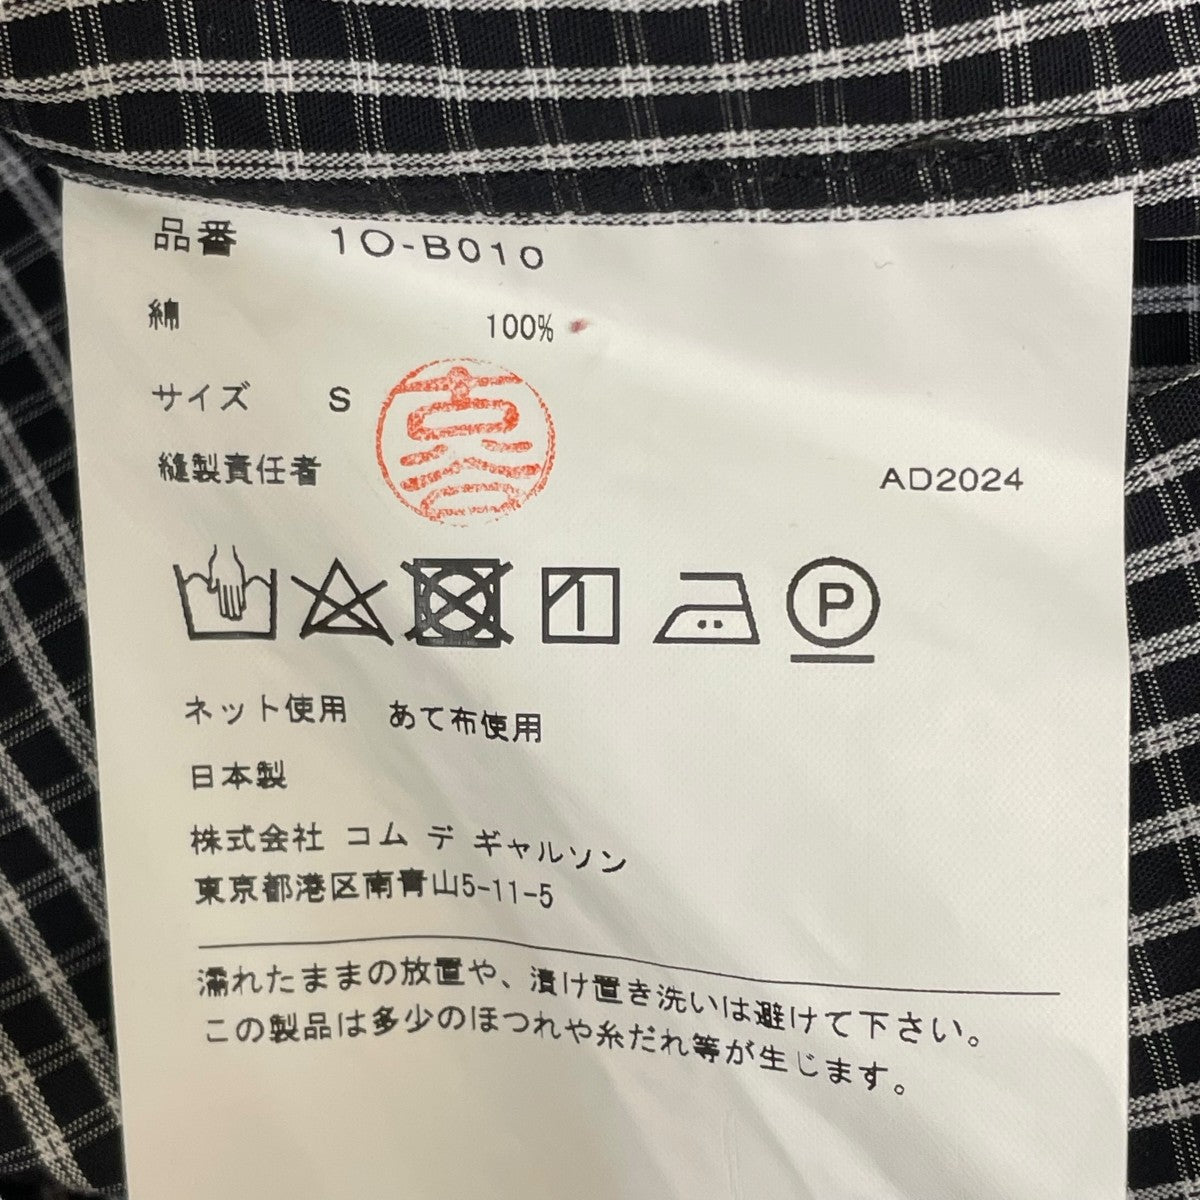 品番 10-B010
綿 100%
サイズ S
縫製責任者
AD2024
P
ネット使用 あて布使用
日本製
株式会社 コム デ ギャルソン
東京都港区南青山5-11-5
濡れたままの放置や、漬け置き洗いは避けて下さい。
この製品は多少のほつれや糸だれ等が生じます。